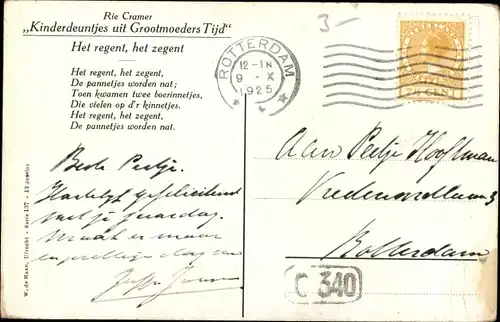 Rie Cramer
„Kinderdeuntjes uit Grootmoeders Tijd"
Het regent, het zegent
Het regent, het zegent,
De pannetjes worden nat;
Toen kwamen twee boerinnetjes,
Die vielen op d'r kinnetjes.
Het regent, het zegent,
De pannetjes worden nat.
Beste Peetje.
Hartelijk gefeliciteerd
met je
Maak er maar
een prettige dag van
W. de Haan, Utrecht - Serie 137 - 12 dessins
3-
ROTTERDAM
12-1N
9 - X
1925
7½ CENT
Aan Peetje Hooftman
Rotterdam
C 340